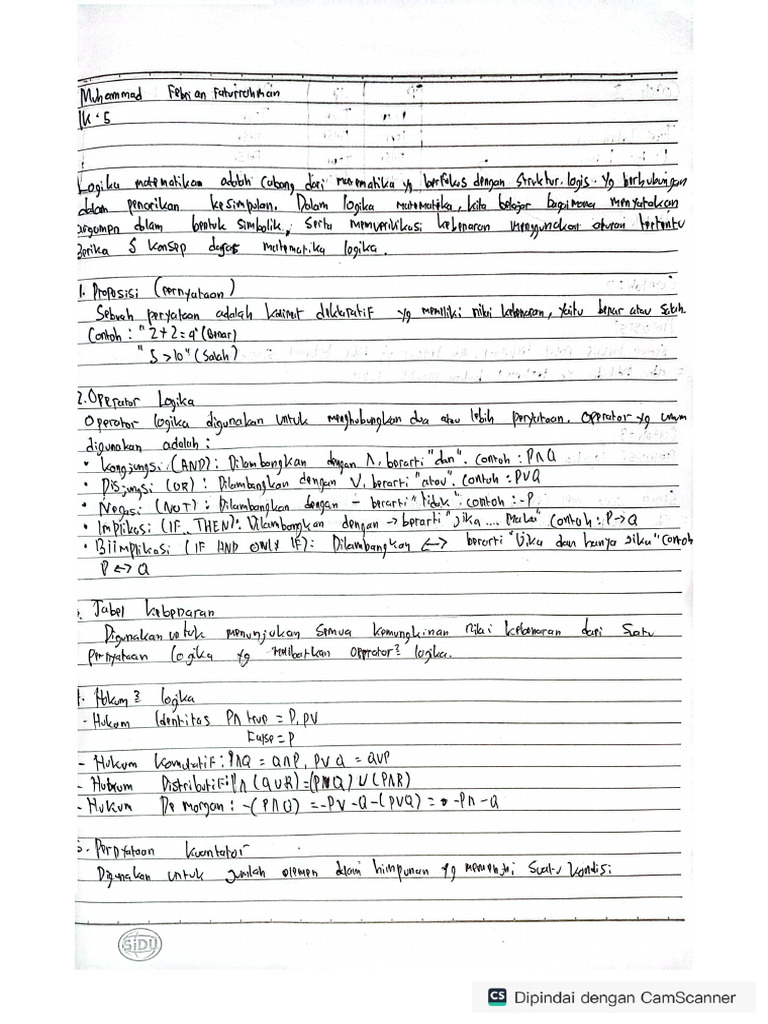 Muhammad Febrian Faturrohman
1K-5
Logika matematikan adolah Cabang dari matematika yg berfokus dengan Struktur logis. Yg berhubungan
dalam penarikan kesimpulan. Dalam logika matematika, kita belajar bagaimana menyatakan
argumen dalam bentuk simbolik, serta memverifikasi kebenaran menggunakan aturan tertentu
Berika 5 konsep dasar matematika logika.
1. Proposisi (pernyataan)
Sebuah peryataan adalah kalimat deklaratif yg memiliki nilai kebenaran, yaitu benar atau salah.
Contoh : "2+2=4" (Benar)
"5 >10" (Salah)
2. Operator Logika
Operator logika digunakan untuk menghubungkan dua atau lebih peryataan. Operator yg umum
digunakan adalah :
• Kongjungsi (AND): Dilambangkan dengan Λ, berarti "dan". contoh : PΛQ
• Disjungsi (OR) : Dilambangkan dengan V, berarti "atau". contoh : PVQ
• Negasi (NOT) : Dilambangkan dengan - berarti "tidak" : contoh : -P
• Implikasi (IF.. THEN): Dilambangkan dengan → berarti "jika ... Maka" contoh : P→Q
• Biimplikasi (IF AND ONLY IF): Dilambangkan ↔ berarti "Jika dan hanya jika" contoh
P ↔ Q
3. Tabel kebenaran
Digunakan untuk menunjukan semua kemungkinan nilai kebenaran dari satu
pernyataan logika yg melibatkan operator² logika.
4. Hukum² logika
- Hukum Identitas PΛ true = P, PV
False = P
- Hukum Komutatif : PΛQ = QΛP, PVQ = QVP
- Hukum Distributif : PΛ (QUR) = (PΛQ) U (PΛR)
- Hukum De morgan : -(PΛQ) = -PV -Q -(PVQ) = -PΛ -Q
5. Pernyataan kuantator
Digunakan untuk jumlah elemen dalam himpunan yg memenuhi suatu kondisi
SiDU
CS Dipindai dengan CamScanner